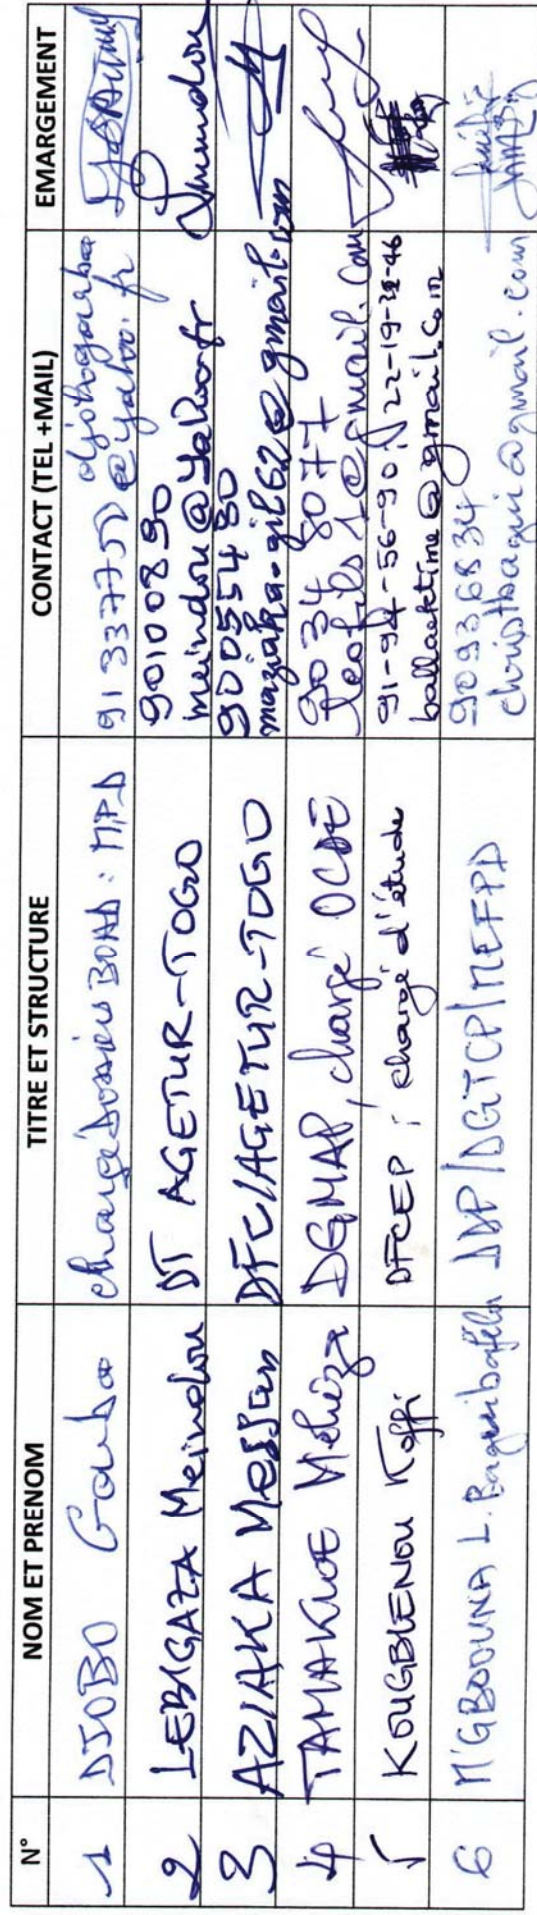 N° NOM ET PRENOM TITRE ET STRUCTURE CONTACT (TEL +MAIL) EMARGEMENT
1 DJOBO Garba chargé dossiers BOAD: MPD 91337757 djobogarba
@yahoo.fr
2 LEBIGAZA Meindou DT AGETUR-TOGO 90100890
meindou@yahoo.fr
3 AZIAKA Messan DFC/AGETUR-TOGO 90055480
maziaka-gil62@gmail.com
4 TAMAKLOE Mehèza DGMAP, chargé OCDE 9034 8077
leofils1@gmail.com
5 KOUGBLENOU Koffi DFCEP ; chargé d'étude 91-94-56-90
ballacktime@gmail.com
6 M'GBOOUNA L. DDP/DGTCP/MEFPD 90936834
christbagni@gmail.com